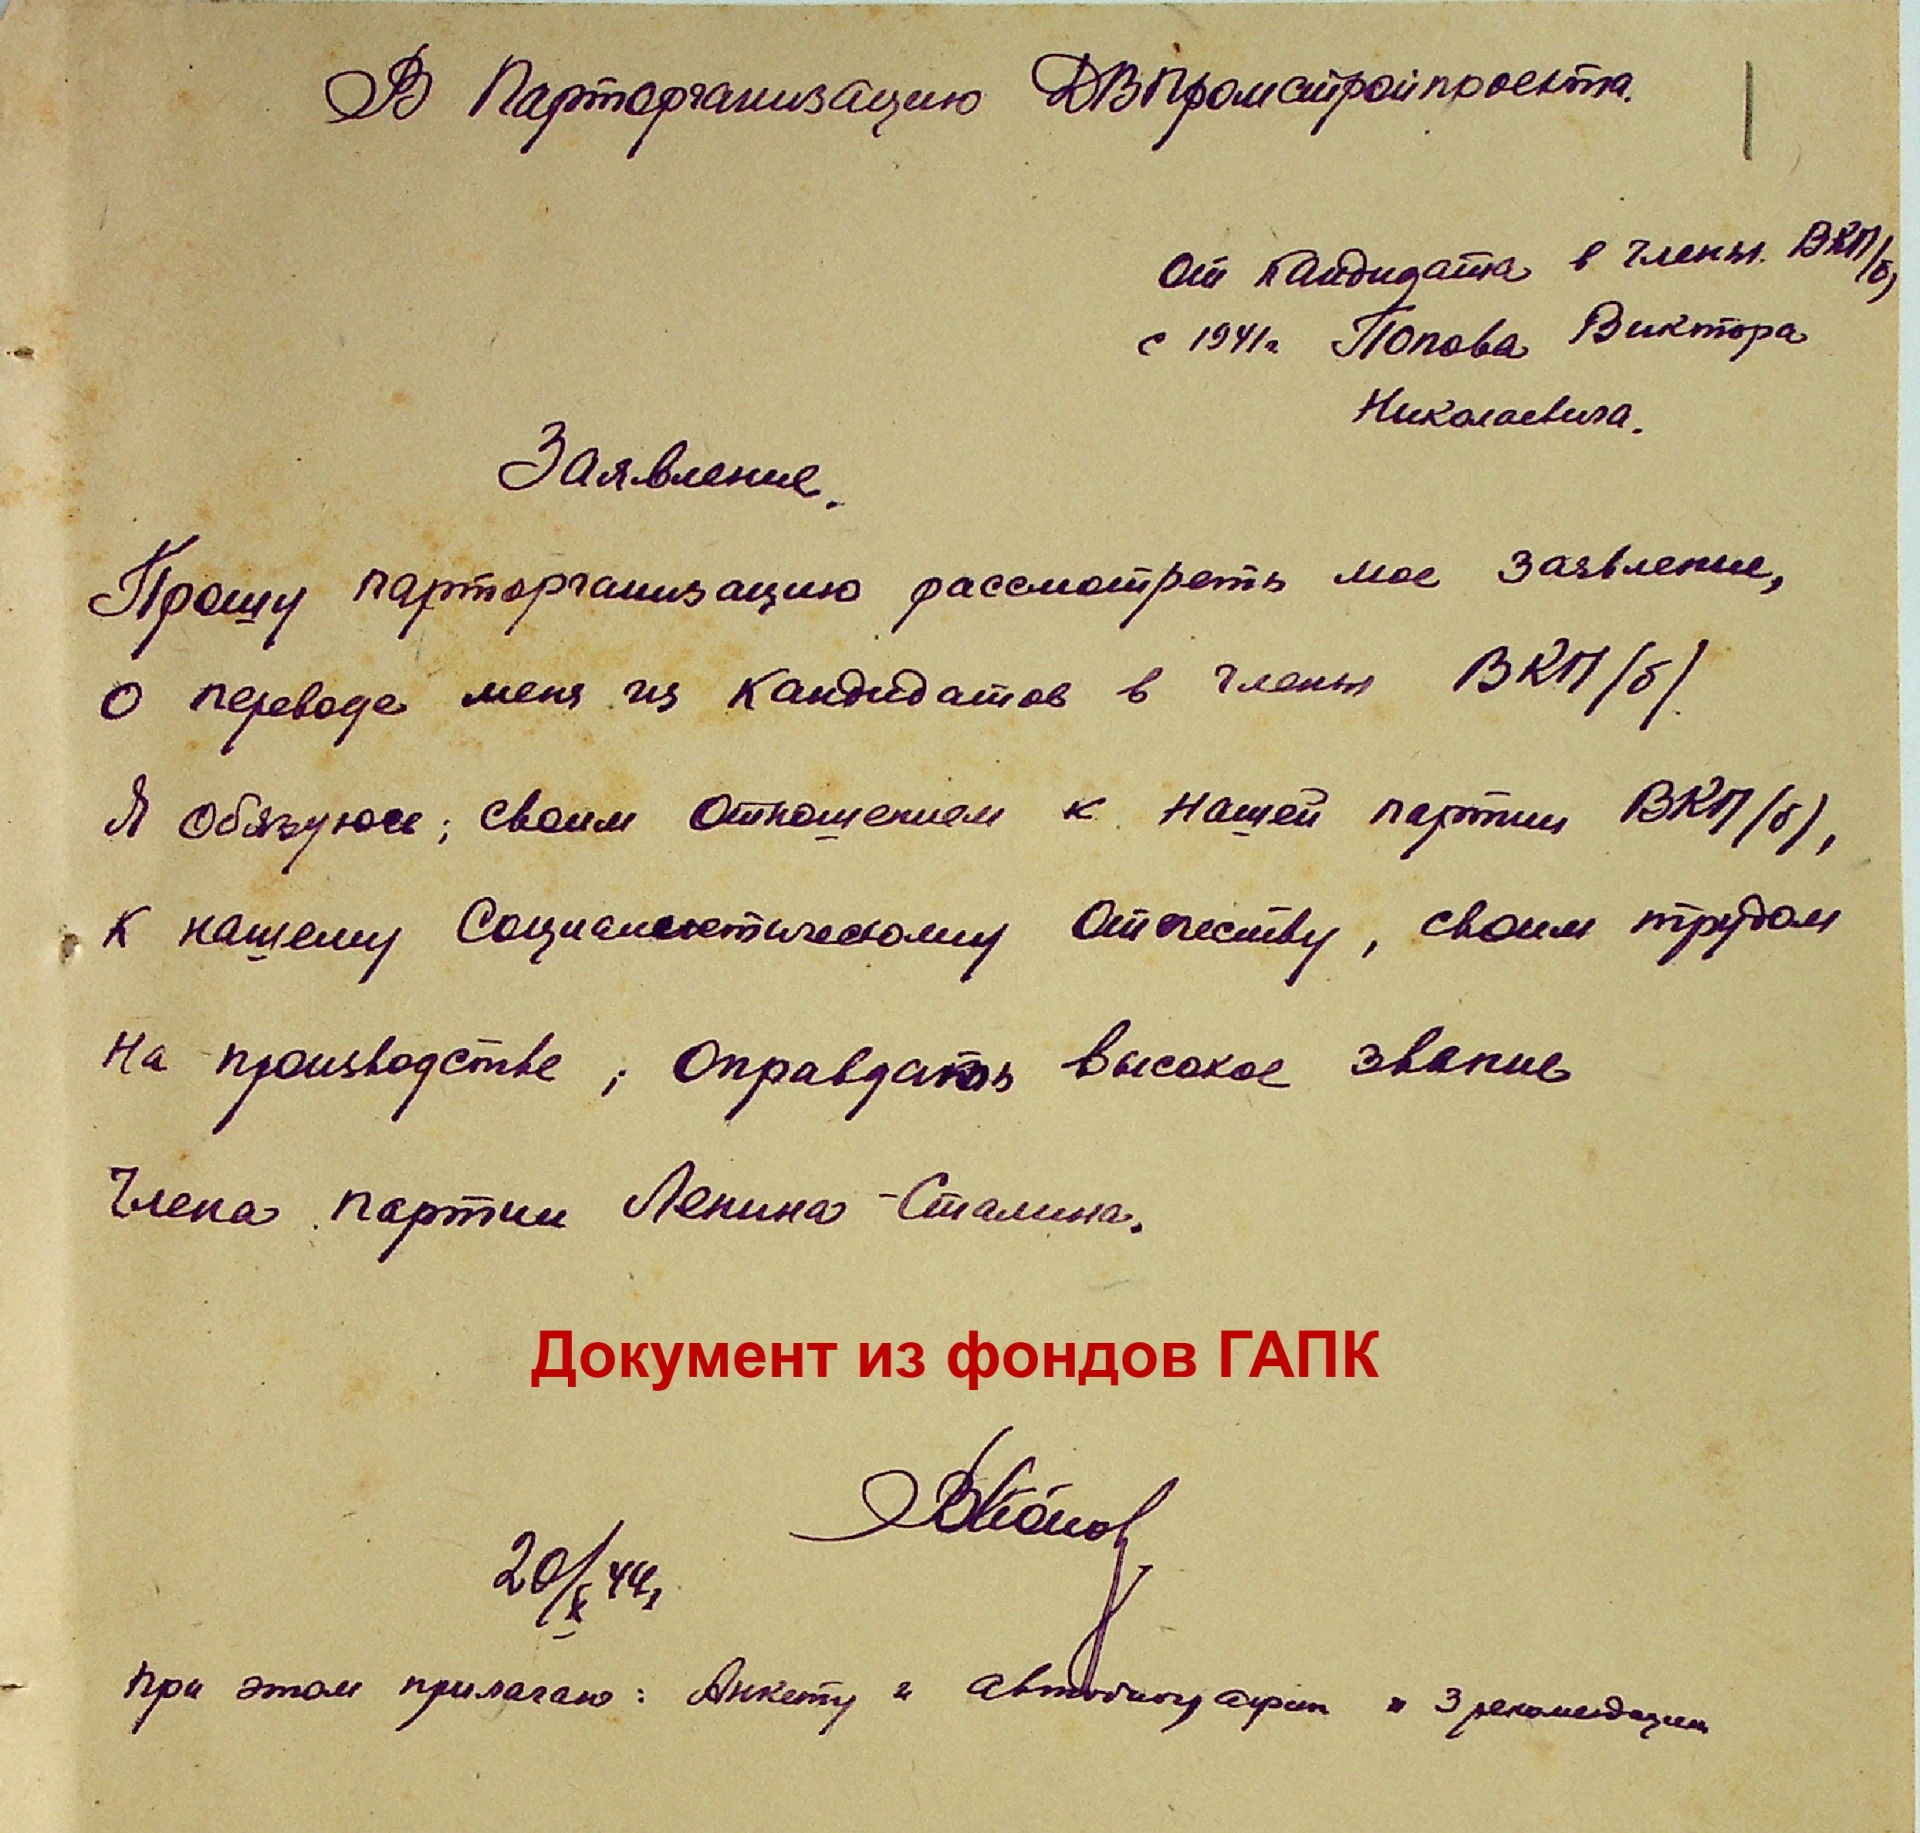 В Парторганизацию ДВПромстройпроекта.
От кандидата в члены ВКП/б/
с 1941г. Попова Виктора
Николаевича.
Заявление.
Прошу парторганизацию рассмотреть мое заявление,
О переводе меня из кандидатов в члены ВКП/б/.
Я обязуюсь; своим отношением к нашей партии ВКП/б/,
К нашему Социалистическому Отечеству, своим трудом
На производстве; оправдать высокое звание
Члена партии Ленина-Сталина.
Документ из фондов ГАПК
ВПопов
20/X 44г.
При этом прилагаю: Анкету и автобиографии и 3 рекомендации